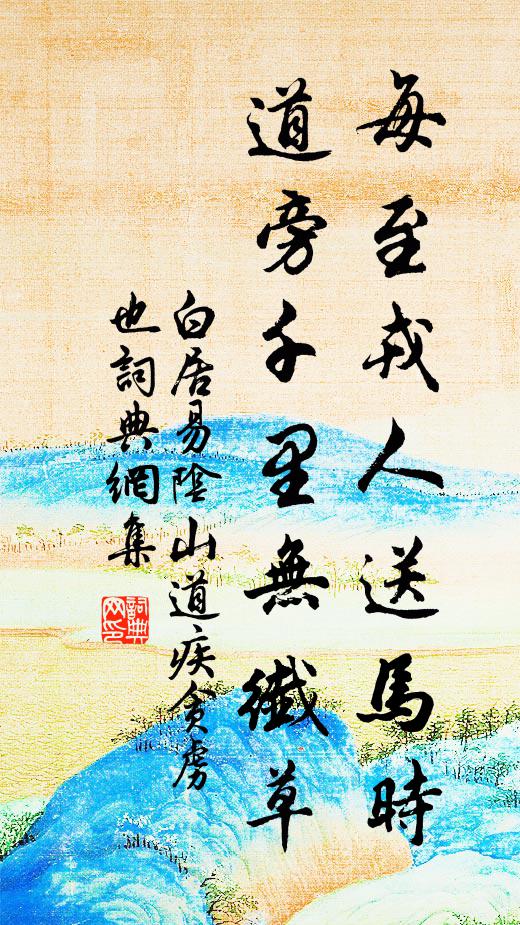 每至戎人送馬時
道旁千里無纖草
白居易陰山道疾貪虏
也詞典網集
詞典
网印